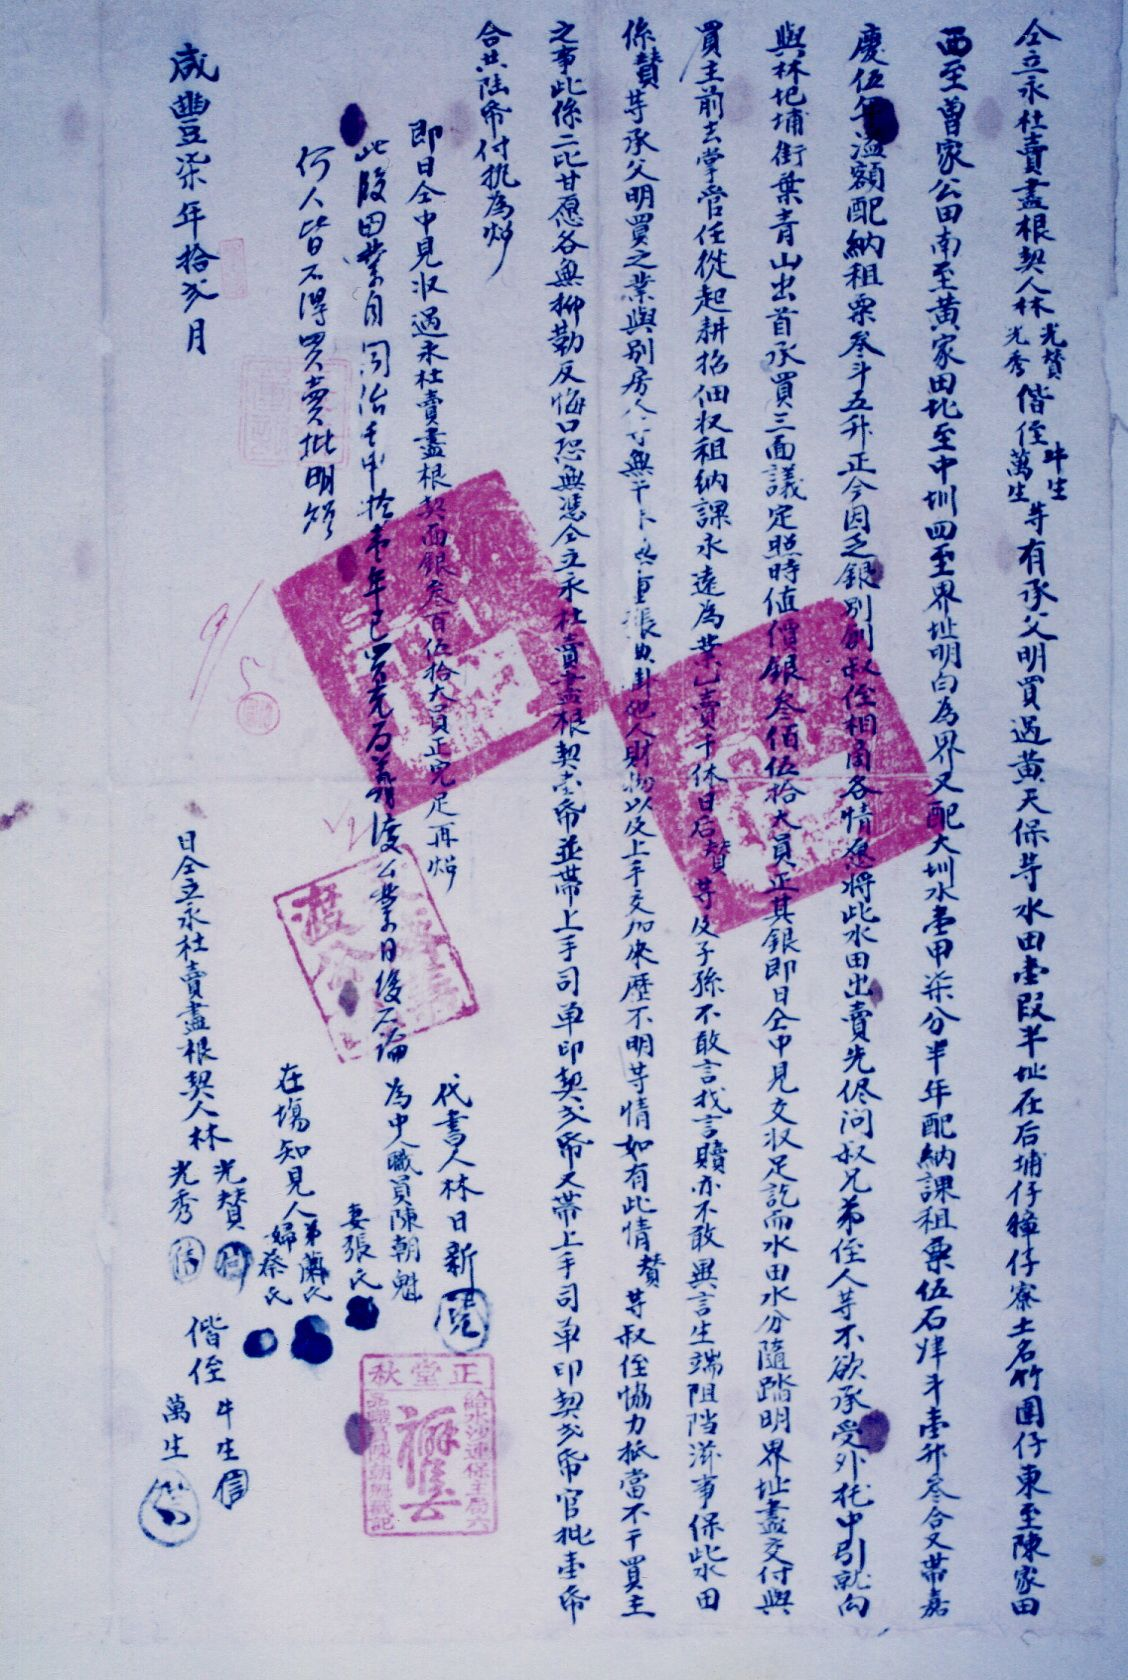 仝立永杜賣盡根契人林光贊光秀偕侄牛生萬生等有承父明買過黃天保等水田壹段半址在后埔仔獐仔寮土名竹圍仔東至陳家田
西至曾家公田南至黃家田北至中圳四至界址明白為界又配大圳水壹甲柒分半年配納課租粟伍石肆斗壹升叁合又帶嘉
慶伍年溢額配納租粟叁斗五升正今因乏銀別創叔侄相商各情愿將此水田出賣先侭問叔兄弟侄人等不欲承受外托中引就向
與林圯埔街葉青山出首承買三面議定照時值價銀叁佰伍拾大員正其銀即日仝中見交收足訖而水田水分隨踏明界址盡交付與
買主前去掌管任從起耕招佃收租納課永遠為業一賣千休日后贊等及子孫不敢言找言贖亦不敢異言生端阻擋滋事保此水田
係贊等承父明買之業與別房人等無干亦無重張典掛他人財物以及上手交加來歷不明等情如有此情贊等叔侄協力抵當不干買主
之事此係二比甘愿各無抑勒反悔口恐無憑仝立永杜賣盡根契壹帋並帶上手司單印契弍帋又帶上手司單印契弍帋官批壹帋
合共陸帋付執為炤
即日仝中見收過永杜賣盡根契面銀叁百伍拾大員正完足再炤
此段田業自同治壬申拾壹年已買充為義渡公業日後不論
何人皆不得買賣批明炤
代書人林日新
為中人職員陳朝魁
妻張氏
在塲知見人弟蘭氏
婦蔡氏
咸豐柒年拾弍月 日仝立永杜賣盡根契人林光贊光秀偕侄牛生萬生
正堂秋
給水沙連保主局六